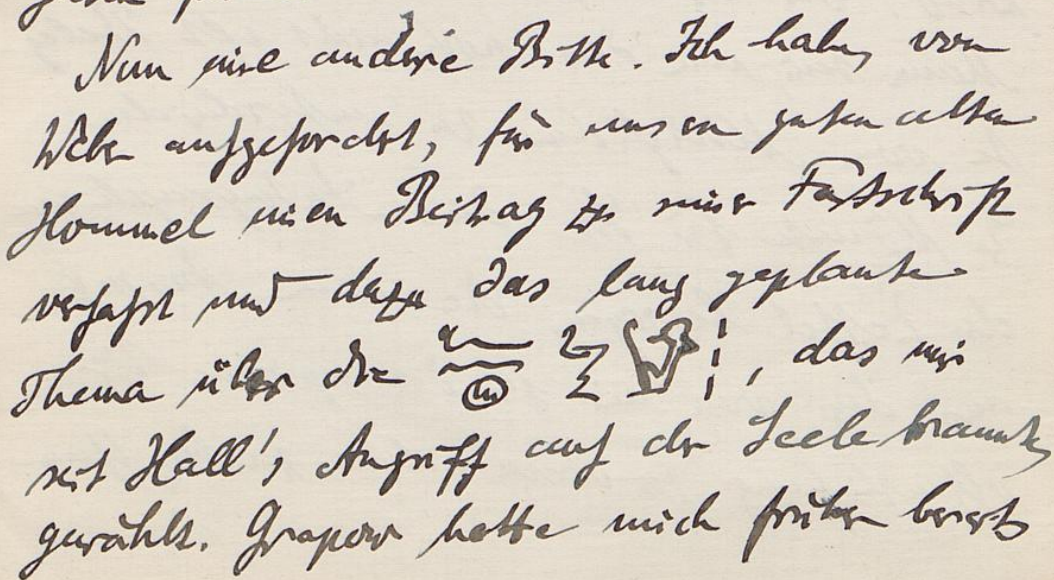 Nun eine andere Bitte. Ich habe, von
Weber aufgefordert, für unsern guten alten
Hommel einen Beitrag zu seiner Festschrift
verfaßt und dazu das lang geplante
Thema über die , das mir
seit Hall's Angriff auf der Seele brannte,
gewählt. Grapow hatte mich früher bereits